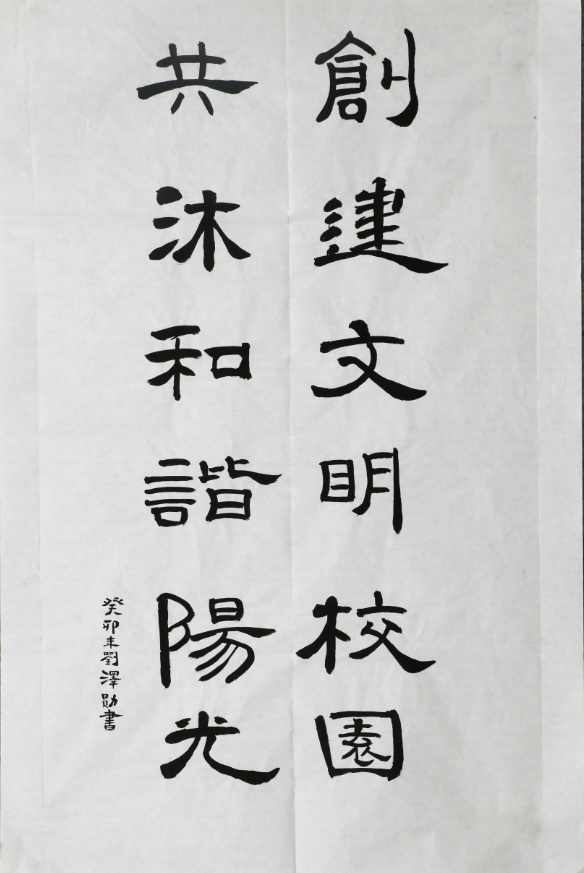 創建文明校園
共沐和諧陽光
癸卯年劉澤勛書